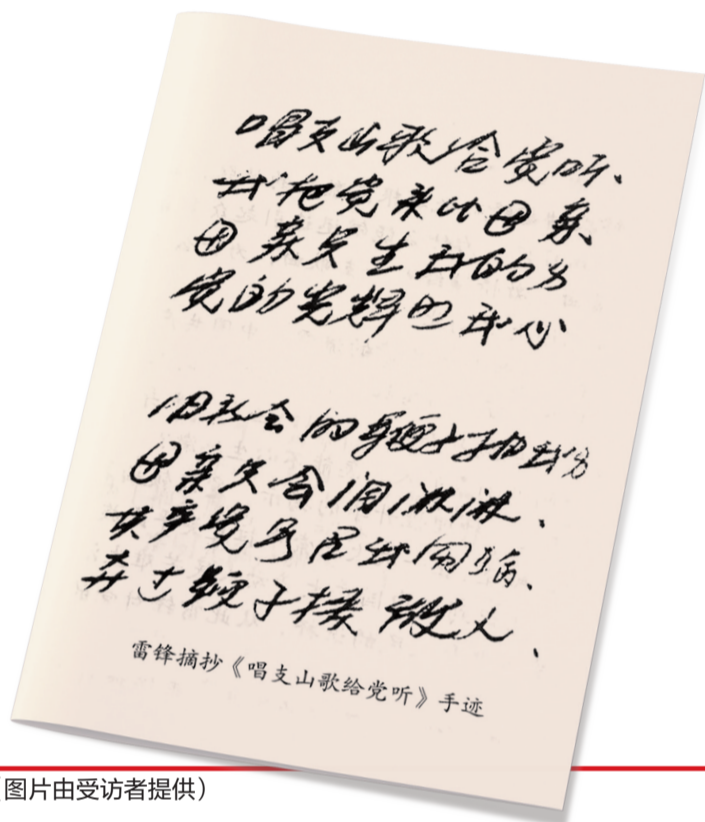 唱支山歌给党听、
我把党来比母亲
母亲只生我的身
党的光辉照我心
旧社会的鞭子抽我身
母亲只会泪淋淋、
共产党号召我闹革命、
夺过鞭子揍敌人、
雷锋摘抄《唱支山歌给党听》手迹
（图片由受访者提供）